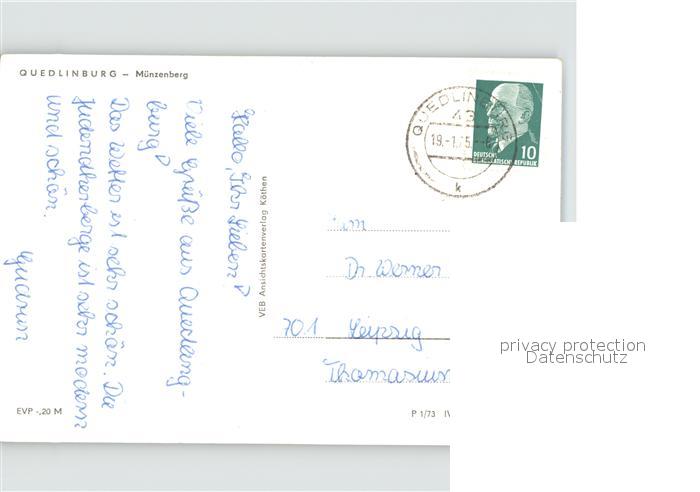 QUEDLINBURG – Münzenberg
Hallo, Ihr Lieben!
Viele Grüße aus Quedling-
burg!
Das Wetter ist sehr schön. Die
Judendherberge ist sehr modern
und schön.
Gudrun
VEB Ansichtskartenverlag Köthen
EVP -,20 M
P 1/73 IV
QUEDLINBURG
43
19.-1.75.-
k
10
DEUTSCHE
DEMOKRATISCHE REPUBLIK
Dr Werner
701 Leipzig
privacy protection
Datenschutz